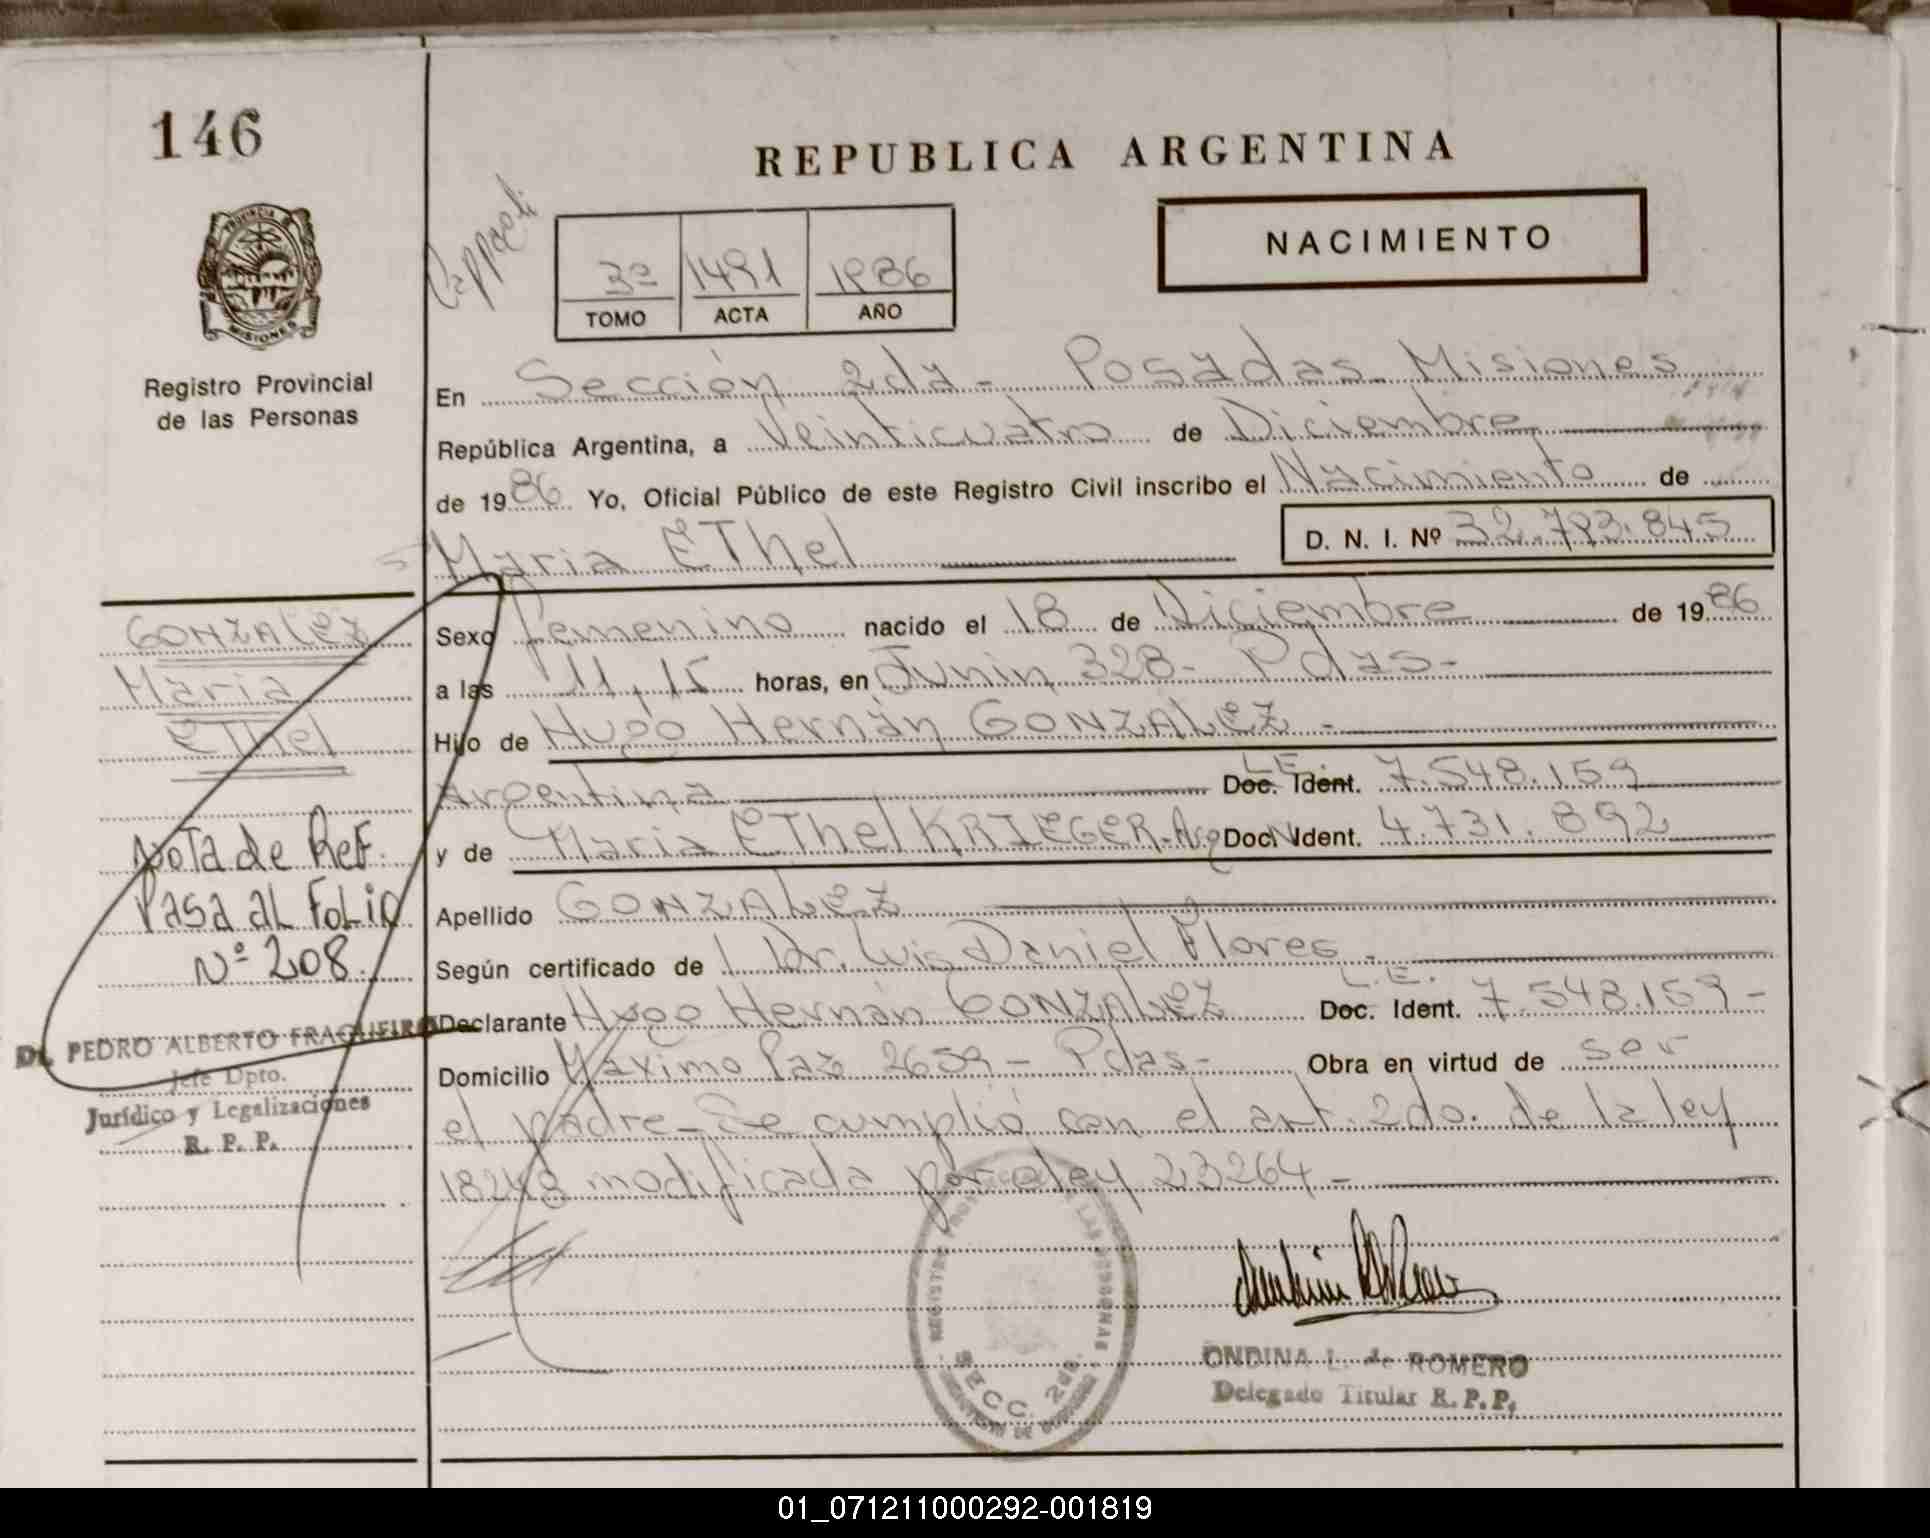 146
REPUBLICA ARGENTINA
NACIMIENTO
3º 1491 1986
TOMO ACTA AÑO
PROVINCIA DE
MISIONES
Registro Provincial
de las Personas
En Sección 2da - Posadas Misiones
República Argentina, a Veinticuatro de Diciembre
de 1986 Yo, Oficial Público de este Registro Civil inscribo el Nacimiento de
Maria EThel
D. N. I. Nº 32.793.845
GONZALEZ
Maria
EThel
Nota de Ref.
Pasa al Folio
Nº 208
Dr. PEDRO ALBERTO FRAQUEIRO
Jefe Dpto.
Jurídico y Legalizaciones
R. P. P.
Sexo Femenino nacido el 18 de Diciembre de 1986
a las 11,15 horas, en Junin 328 - Pdas -
Hijo de Hugo Hernán GONZALEZ -
Argentina L.E. Doc. Ident. 7.548.159
y de Maria EThel KRIEGER - Arg Doc. Ident. 4.731.892
Apellido GONZALEZ
Según certificado de Dr. Luis Daniel Flores -
Declarante Hugo Hernán GONZALEZ L.E. Doc. Ident. 7.548.159 -
Domicilio Maximo Paz 2659 - Pdas - Obra en virtud de ser
el padre - Se cumplió con el art. 2do. de la ley
18248 modificada por ley 23264 -
SECC. 2da.
ONDINA L. de ROMERO
Delegado Titular R. P. P.
01_071211000292-001819